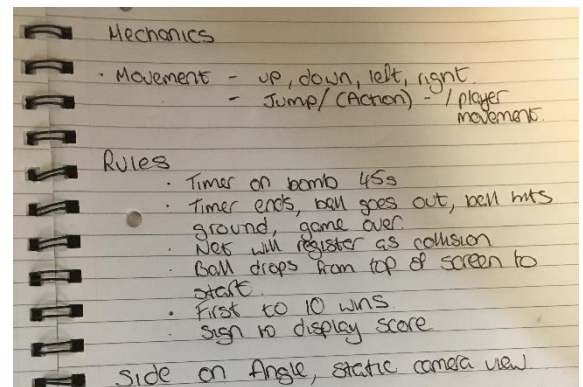 Mechanics
· Movement - up, down, left, right.
- Jump/(Action) - / player
movement.
Rules
· Timer on bomb 45s
· Timer ends, ball goes out, ball hits
ground, game over.
· Net will register as collision
· Ball drops from top of screen to
start.
· First to 10 wins.
· Sign to display score
Side on Angle, static camera view